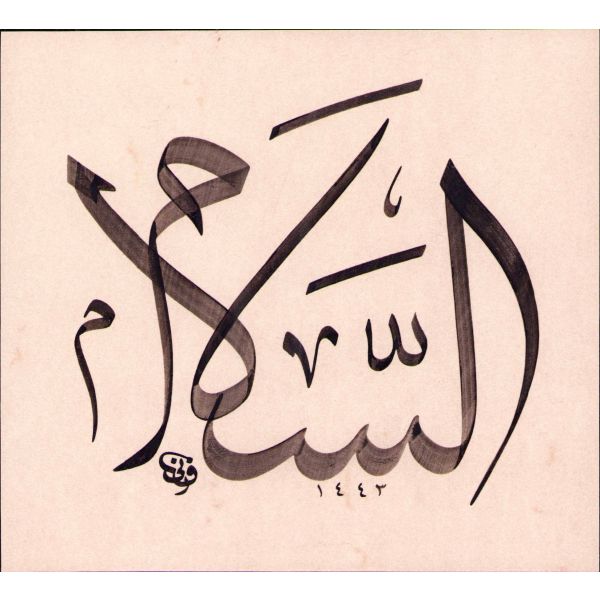 السَّلَام
١٤٤٣